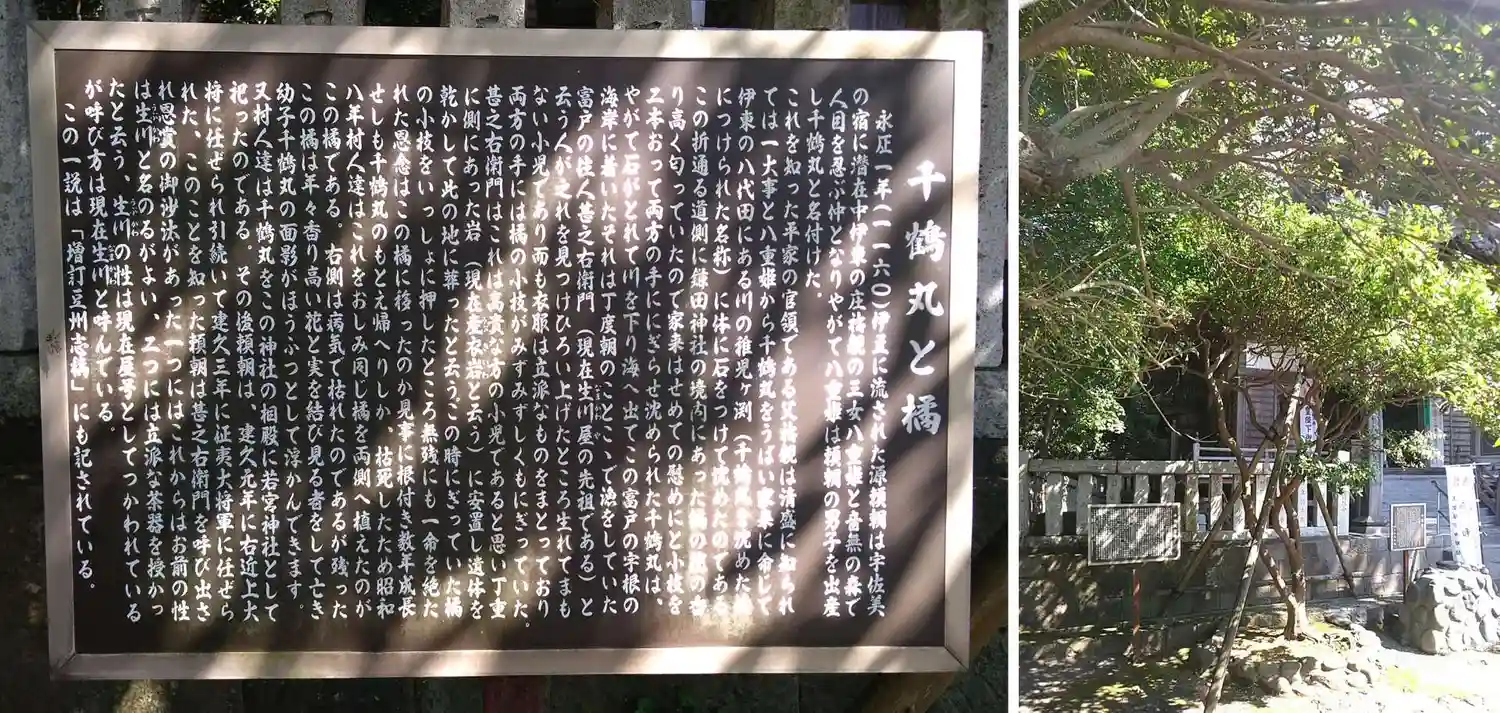 千鶴丸と橘
永庄一年(一一六〇)伊豆に流された源頼朝は宇佐美
の宿に潜在中伊東の庄祐親の三女八重姫と音無の森で
人目を忍ぶ仲となりやがて八重姫は頼朝の男子を出産
し千鶴丸と名付けた。
これを知った平家の官領である父祐親は清盛に知られ
ては一大事と八重姫から千鶴丸をうばい家来に命じて
伊東の八代田にある川の稚児ヶ渕(千鶴丸を沈めた
につけられた名称)に体に石をつけて沈めたのである
この折通る道側に鎌田神社の境内にあった橘の花の香
り高く匂っていたので家来はせめての慰めにと小枝を
二本おって両方の手ににぎらせ沈められた千鶴丸は、
やがて石がとれて川を下り海へ出てこの富戸の宇根の
海岸に着いたそれは丁度朝のことここで漁をしていた
富戸の住人甚之右衛門(現在生川屋の先祖である)と
云う人が之れを見っけひろい上げたところ生れてまも
ない小児であり而も衣服は立派なものをまとっており
両方の手には橘の小枝がみずみずしくもにぎっていた。
甚之右衛門はこれは高貴な方の小児であると思い丁重
に側にあった岩(現在産衣岩と云う)に安置し遺体を
乾かして此の地に葬ったと云うこの時にぎっていた橘
の小枝をいっしょに押したところ無残にも一命を絶た
れた怨念はこの橘に移ったのか見事に根付き数年成長
せしも千鶴丸のもとえ帰へりしか、枯死したため昭和
八年村人達はこれをおしみ同じ橘を両側へ植えたのが
この橘である。右側は病気で枯れたのであるが残った
この橘は年々香り高い花と実を結び見る者をして亡き
幼子千鶴丸の面影がほうふつとして浮かんできます。
又村人達は千鶴丸をこの神社の相殿に若宮神社として
祀ったのである。その後頼朝は、建久元年に右近上大
将に任ぜられ引続いて建久三年に征夷大将軍に任ぜら
れた、このことを知った頼朝は甚之右衛門を呼び出さ
れ恩賞の御沙汰があった一つにはこれからはお前の性
は生川と名のるがよい、二つには立派な茶器を授かっ
たと云う、生川の性は現在屋号としてつかわれている
が呼び方は現在生川と呼んでいる。
この一説は「増訂豆州志稿」にも記されている。